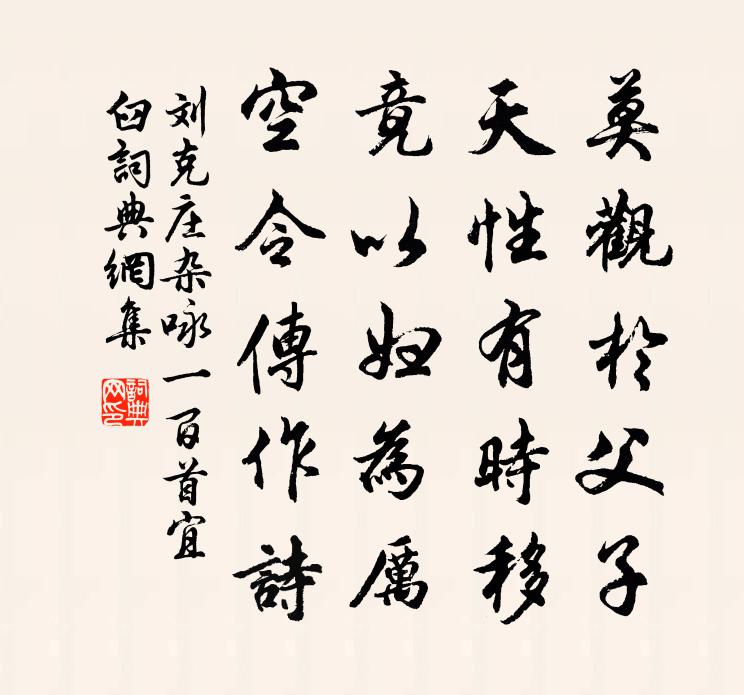 莫觀於父子
天性有時移
竟以妇為厲
空令傳作詩
刘克庄杂咏一百首宜
臼詞典網集
詞典
网印